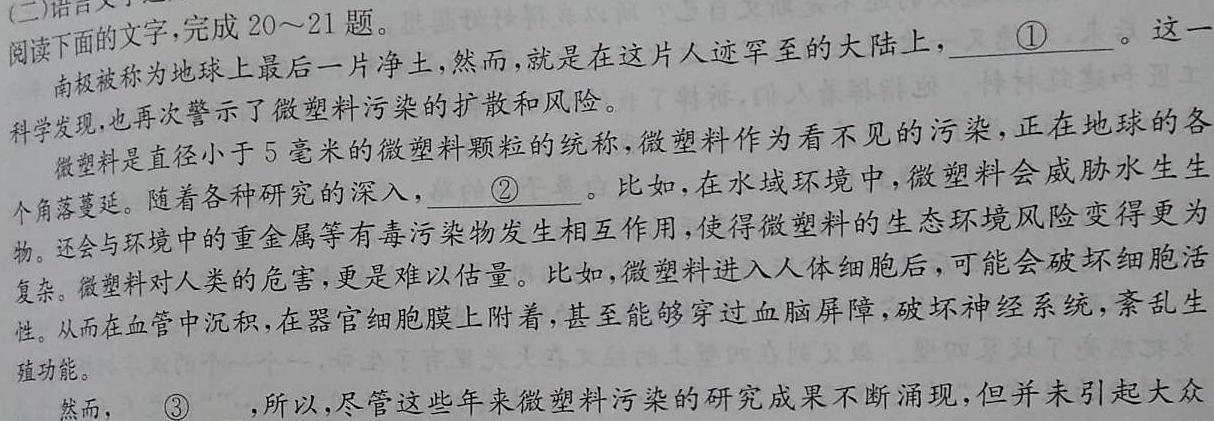 (二)语言文字
阅读下面的文字,完成20～21题。
南极被称为地球上最后一片净土,然而,就是在这片人迹罕至的大陆上,①。这一
科学发现,也再次警示了微塑料污染的扩散和风险。
微塑料是直径小于5毫米的微塑料颗粒的统称,微塑料作为看不见的污染,正在地球的各
个角落蔓延。随着各种研究的深入,②。比如,在水域环境中,微塑料会威胁水生生
物。还会与环境中的重金属等有毒污染物发生相互作用,使得微塑料的生态环境风险变得更为
复杂。微塑料对人类的危害,更是难以估量。比如,微塑料进入人体细胞后,可能会破坏细胞活
性。从而在血管中沉积,在器官细胞膜上附着,甚至能够穿过血脑屏障,破坏神经系统,紊乱生
殖功能。
然而,③,所以,尽管这些年来微塑料污染的研究成果不断涌现,但并未引起大众